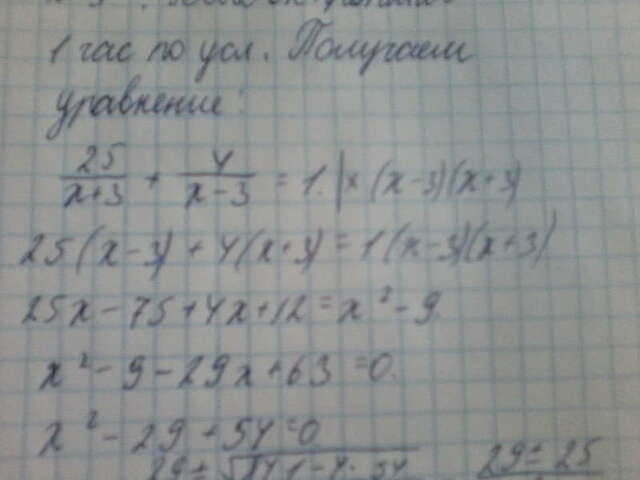 1 час по усл. Получаем
уравнение:
25/(x+3) + 4/(x-3) = 1. | × (x-3)(x+3)
25(x-3) + 4(x+3) = 1(x-3)(x+3)
25x - 75 + 4x + 12 = x² - 9.
x² - 9 - 29x + 63 = 0.
x² - 29 + 54 = 0
29 ± √841 - 4 · 54 29 ± 25